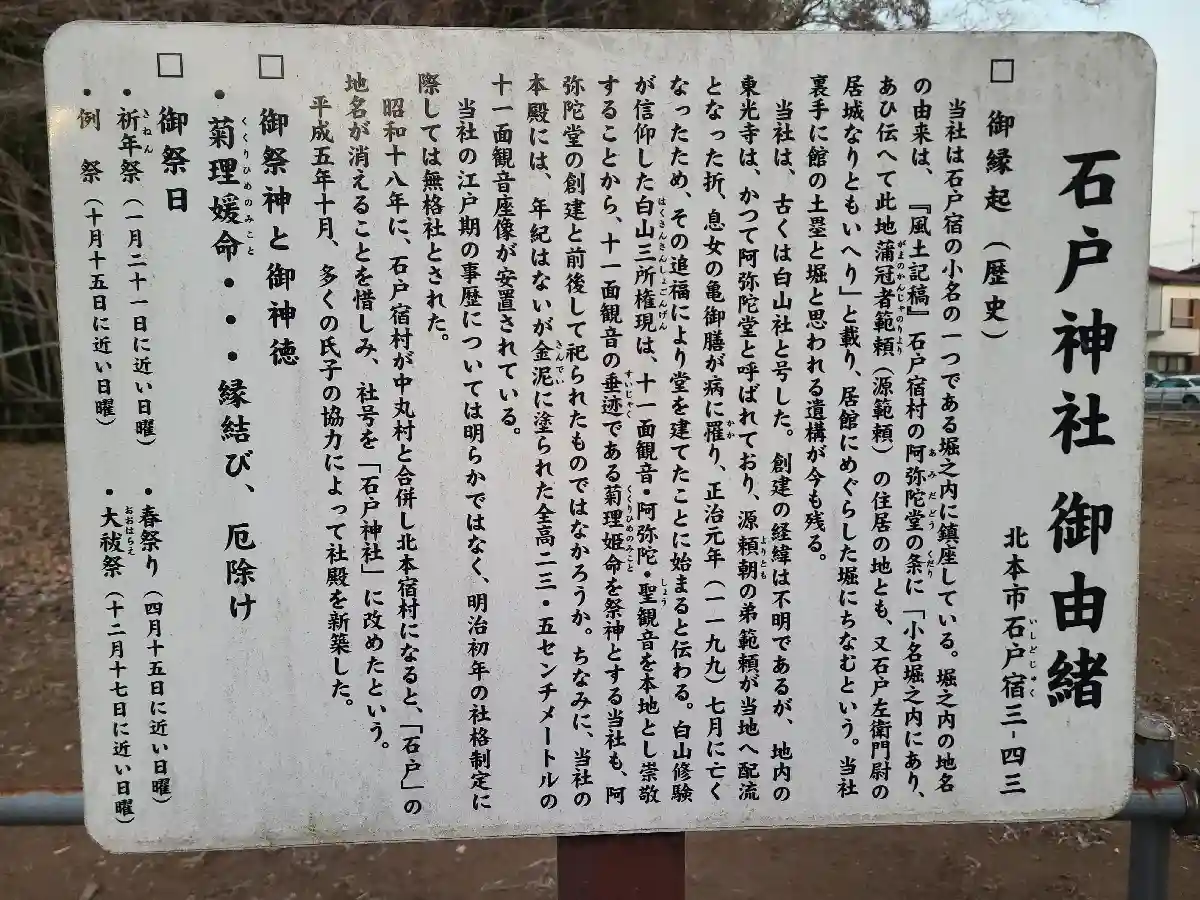 石戸神社 御由緒
北本市石戸宿三-四三
□ 御縁起（歴史）
当社は石戸宿の小名の一つである堀之内に鎮座している。堀之内の地名
の由来は、『風土記稿』石戸宿村の阿弥陀堂の条に「小名堀之内にあり、
あひ伝へて此地蒲冠者範頼（源範頼）の住居の地とも、又石戸左衛門尉の
居城なりともいへり」と載り、居館にめぐらした堀にちなむという。当社
裏手に館の土塁と堀と思われる遺構が今も残る。
当社は、古くは白山社と号した。創建の経緯は不明であるが、地内の
東光寺は、かつて阿弥陀堂と呼ばれており、源頼朝の弟範頼が当地へ配流
となった折、息女の亀御膳が病に罹り、正治元年（一一九九）七月に亡く
なったため、その追福により堂を建てたことに始まると伝わる。白山修験
が信仰した白山三所権現は、十一面観音・阿弥陀・聖観音を本地とし崇敬
することから、十一面観音の垂迹である菊理姫命を祭神とする当社も、阿
弥陀堂の創建と前後して祀られたものではなかろうか。ちなみに、当社の
本殿には、年紀はないが金泥に塗られた全高二三・五センチメートルの
十一面観音座像が安置されている。
当社の江戸期の事歴については明らかではなく、明治初年の社格制定に
際しては無格社とされた。
昭和十八年に、石戸宿村が中丸村と合併し北本宿村になると、「石戸」の
地名が消えることを惜しみ、社号を「石戸神社」に改めたという。
平成五年十月、多くの氏子の協力によって社殿を新築した。
□ 御祭神と御神徳
・菊理媛命・・・縁結び、厄除け
□ 御祭日
・祈年祭（一月二十一日に近い日曜） ・春祭り（四月十五日に近い日曜）
・例 祭（十月十五日に近い日曜） ・大祓祭（十二月十七日に近い日曜）